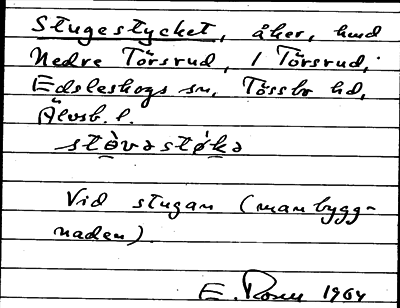 Stugestycket, åker, hmd
Nedre Törsrud, 1 Törsrud,
Edsleskogs sn, Tössbo hd,
Älvsb. l.
stòvəstøkə
Vid stugan (manbygg-
naden).
E. 1964